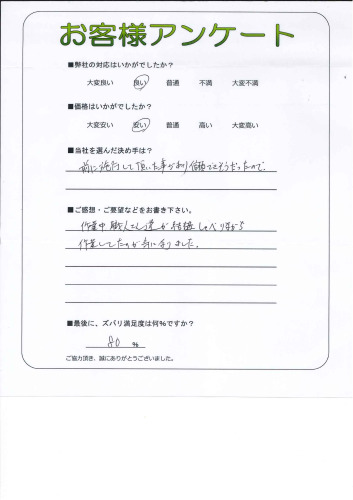 お客様アンケート
■弊社の対応はいかがでしたか？
大変良い 良い 普通 不満 大変不満
■価格はいかがでしたか？
大変安い 安い 普通 高い 大変高い
■当社を選んだ決め手は？
前に施行して頂いた事があり信頼できそうだったので、
■ご感想・ご要望などをお書き下さい。
作業中職人さん達が結構しゃべりながら
作業してたのが気になりました。
■最後に、ズバリ満足度は何%ですか？
80 %
ご協力頂き、誠にありがとうございました。